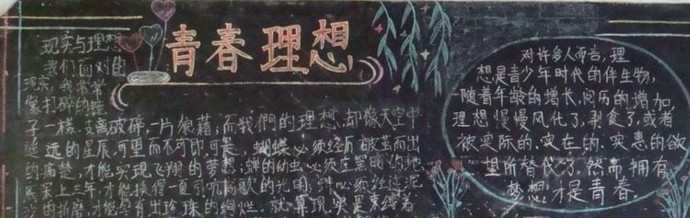 青春理想
现实与理想
我们面对自
现实,我常常
像打碎的镜
子一样,支离破碎,一片狼藉,而我們的理想,却像天空中
遥远的星辰,可望而不可即,可是,蝴蝶必须经历破茧而出
的痛楚,才能实现飞翔的梦想,蝉的幼虫必须在黑暗的地
三年,才能换得一夏
的折磨,才能孕育出珍珠的绚烂,就算现实是
对许多人而言,理
想是青少年时代的伴生物,
随着年龄的增长,阅历的增加,
理想慢慢风化了,剥食了,或者
被实际的,实在的,实惠的欲
望所替代了,然而,拥有
梦想才是青春